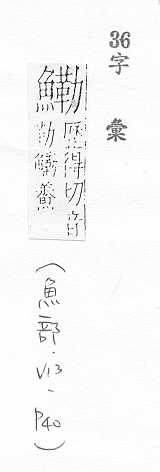 36字彙
鰳
歷得切音
勒鰳鯗
(魚部.V13-P40)